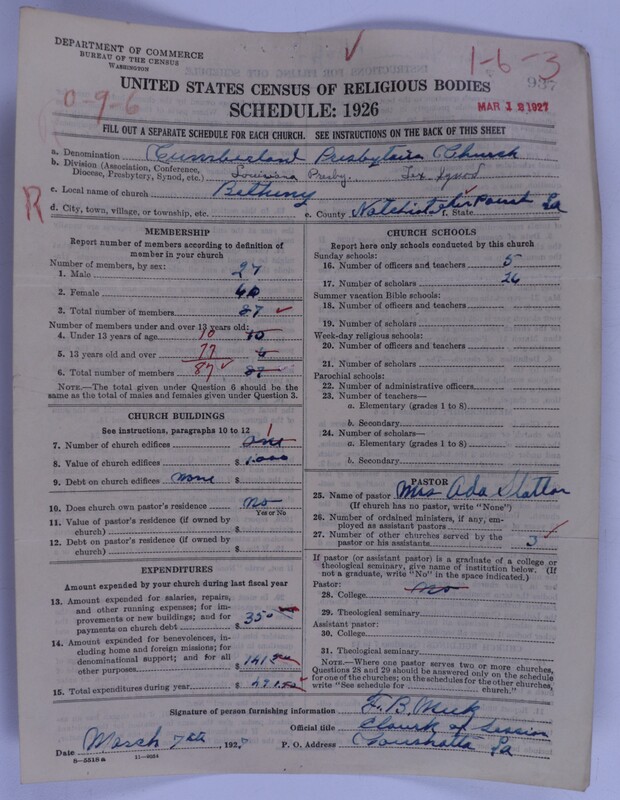 DEPARTMENT OF COMMERCE
BUREAU OF THE CENSUS
WASHINGTON
1-6-3
937
0-9-6
UNITED STATES CENSUS OF RELIGIOUS BODIES
SCHEDULE: 1926
MAR 12 1927
FILL OUT A SEPARATE SCHEDULE FOR EACH CHURCH. SEE INSTRUCTIONS ON THE BACK OF THIS SHEET
a. Denomination Cumberland Presbyterian Church
b. Division (Association, Conference, Diocese, Presbytery, Synod, etc.) Louisiana Presby. Tex Synod
R
c. Local name of church Bethany
d. City, town, village, or township, etc. e. County Natchitoches Parish f. State La
MEMBERSHIP
Report number of members according to definition of member in your church
Number of members, by sex:
1. Male 27
2. Female 60
3. Total number of members 87
Number of members under and over 13 years old:
4. Under 13 years of age 10 10
5. 13 years old and over 77
6. Total number of members 87 87
NOTE.—The total given under Question 6 should be the same as the total of males and females given under Question 3.
CHURCH BUILDINGS
See instructions, paragraphs 10 to 12
7. Number of church edifices one 1
8. Value of church edifices $ 1.000
9. Debt on church edifices none $
10. Does church own pastor's residence No
Yes or No
11. Value of pastor's residence (if owned by church) $
12. Debt on pastor's residence (if owned by church) $
EXPENDITURES
Amount expended by your church during last fiscal year
13. Amount expended for salaries, repairs, and other running expenses; for improvements or new buildings; and for payments on church debt $ 350
14. Amount expended for benevolences, including home and foreign missions; for denominational support; and for all other purposes $ 141
15. Total expenditures during year $ 491
CHURCH SCHOOLS
Report here only schools conducted by this church
Sunday schools:
16. Number of officers and teachers 5
17. Number of scholars 26
Summer vacation Bible schools:
18. Number of officers and teachers
19. Number of scholars
Week-day religious schools:
20. Number of officers and teachers
21. Number of scholars
Parochial schools:
22. Number of administrative officers
23. Number of teachers—
a. Elementary (grades 1 to 8)
b. Secondary
24. Number of scholars—
a. Elementary (grades 1 to 8)
b. Secondary
PASTOR
25. Name of pastor Mrs Ada
(If church has no pastor, write "None")
26. Number of ordained ministers, if any, employed as assistant pastors
27. Number of other churches served by the pastor or his assistants 3
If pastor (or assistant pastor) is a graduate of a college or theological seminary, give name of institution below. (If not a graduate, write "No" in the space indicated.)
Pastor:
28. College No
29. Theological seminary
Assistant pastor:
30. College
31. Theological seminary
NOTE.—Where one pastor serves two or more churches, Questions 28 and 29 should be answered only on the schedule for one of the churches; on the schedules for the other churches, write "See schedule for church."
Signature of person furnishing information B. Meek
Official title Clourk of Session
Date March 7th, 192 P. O. Address Coushatta La
8-5518a 11-9064